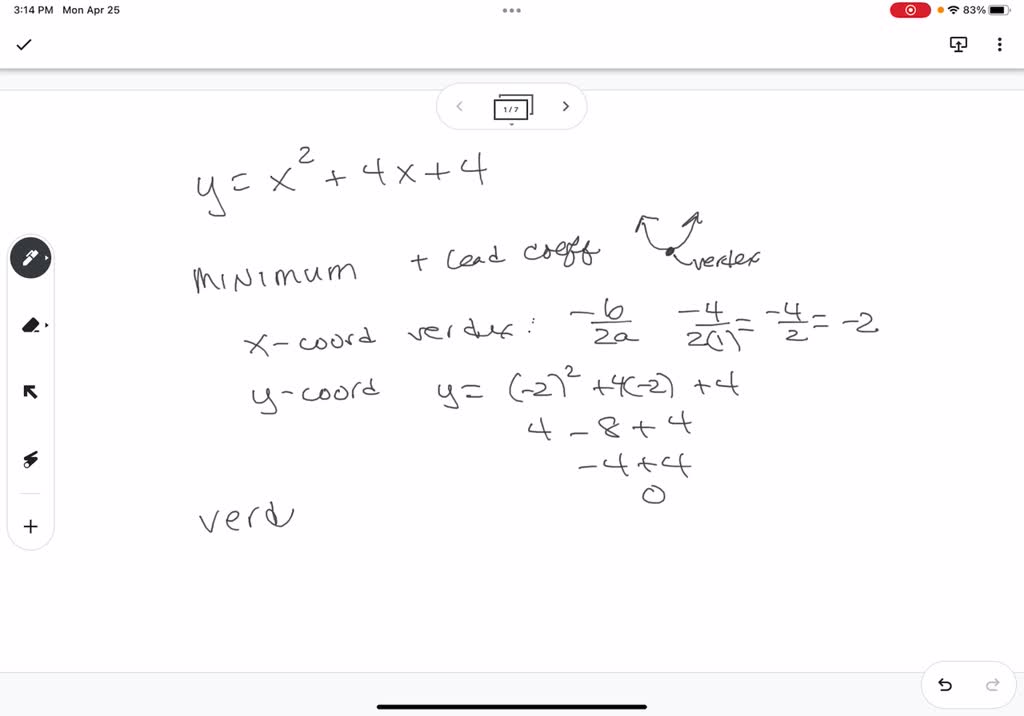 3:14 PM Mon Apr 25
83%
1/7
y = x² + 4x + 4
MINIMUM + lead coeff vertex
x-coord vertex: -b/2a -4/2(1) = -4/2 = -2
y-coord y = (-2)² + 4(-2) + 4
4 - 8 + 4
-4 + 4
0
vert